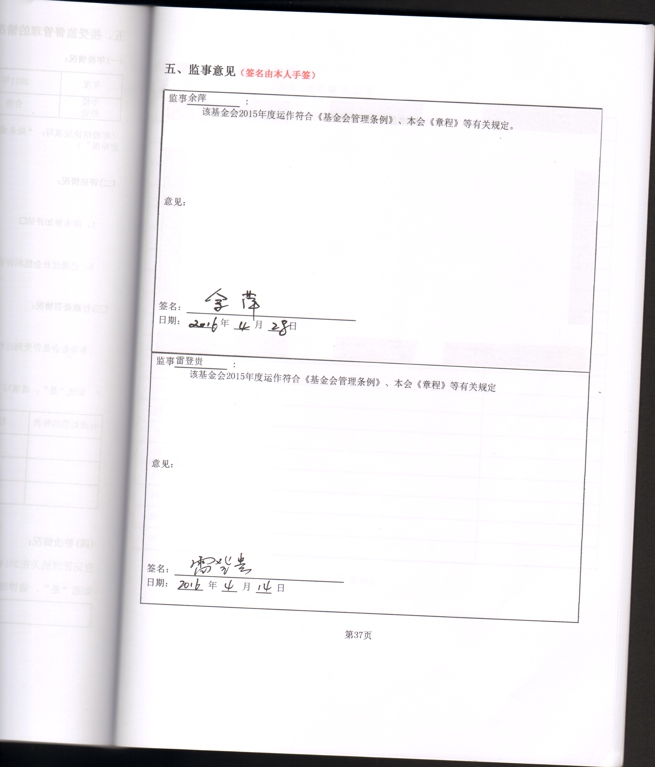 五、监事意见（签名由本人手签）
监事余萍：
该基金会2015年度运作符合《基金会管理条例》、本会《章程》等有关规定。
意见：
签名：余萍
日期：2016年4月28日
监事雷登贵：
该基金会2015年度运作符合《基金会管理条例》、本会《章程》等有关规定
意见：
签名：雷登贵
日期：2016年4月14日
第37页